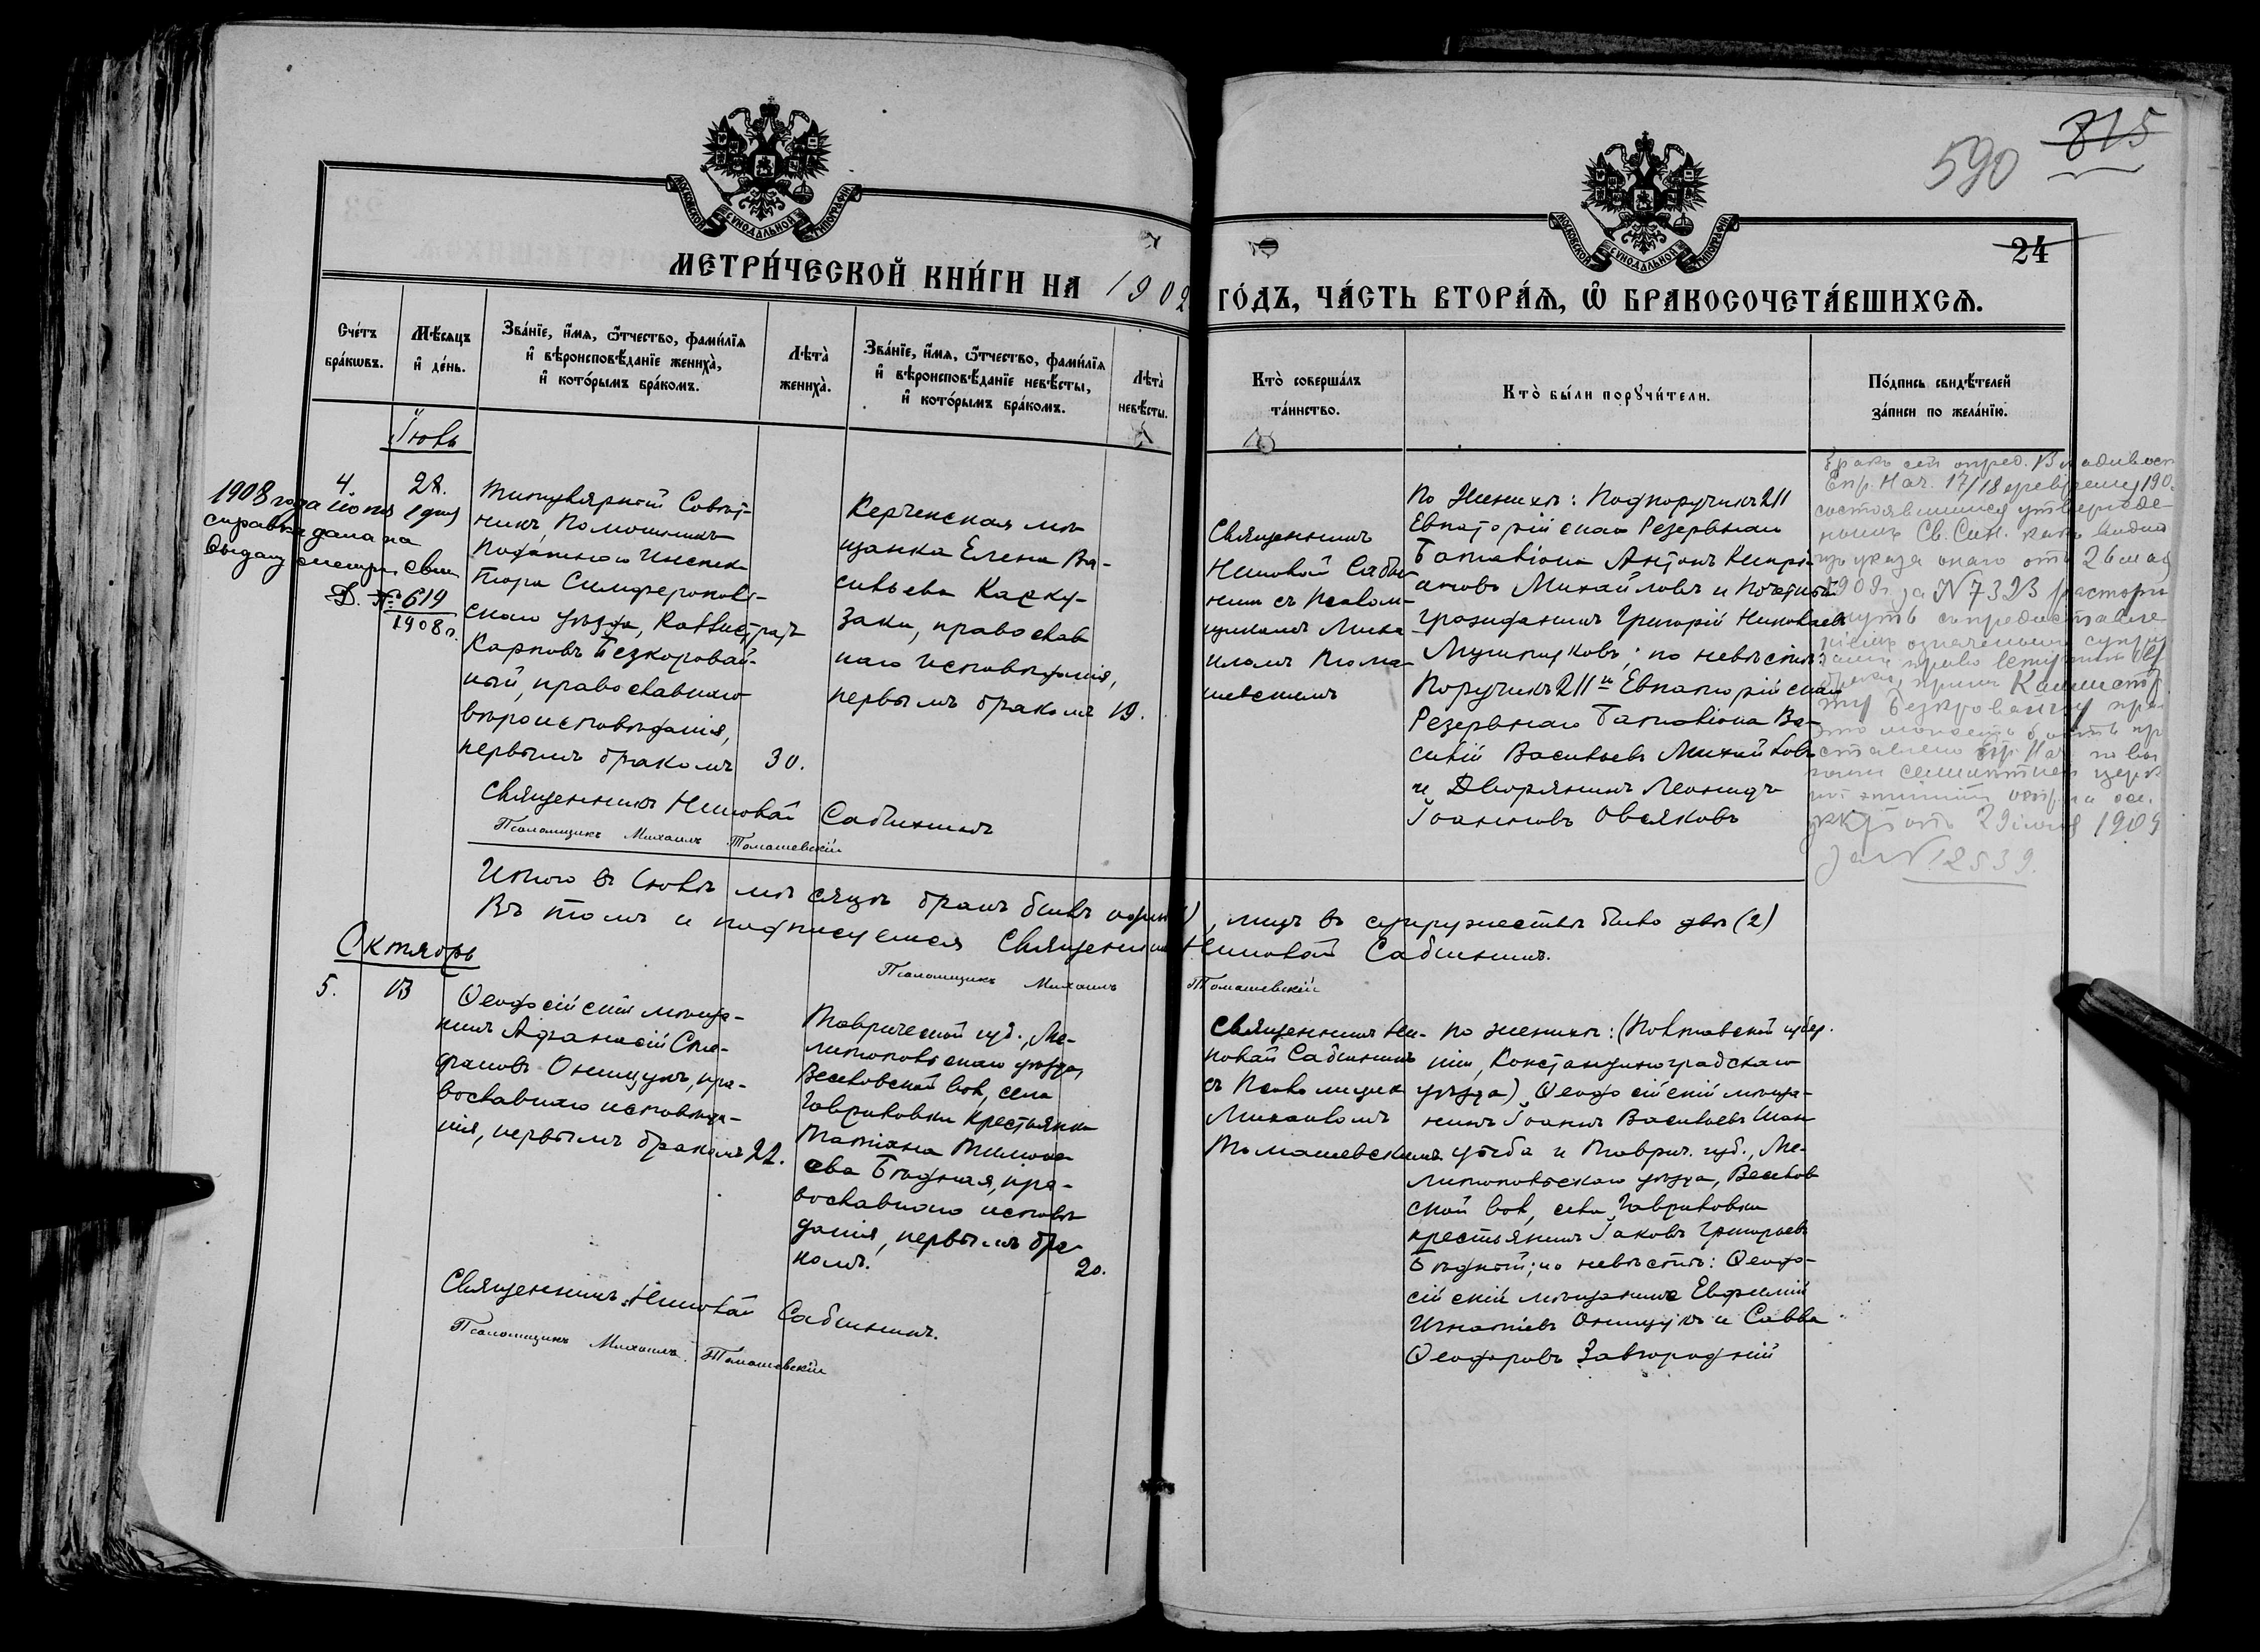 590 815
24
МОСКОВСКОЙ СУНОДАЛЬНОЙ ТИПОГРАФІИ
МЕТРИ́ЧЕСКОЙ КНИ́ГИ НА 1902
МОСКОВСКОЙ СУНОДАЛЬНОЙ ТИПОГРАФІИ
ГО́ДЪ, ЧА́СТЬ ВТОРА́Ѧ, Ѽ БРАКОСОЧЕТА́ВШИХСѦ.
Сче́тъ
бра́кѡвъ.
Мѣ́сѧцъ
и҆ де́нь.
Зва́нїе, и҆́мѧ, ѻ҆́тчество, фами́лїѧ
и҆ вѣроисповѣ́данїе жениха̀,
и҆ кото́рымъ бра́комъ.
Лѣта̀
жениха̀.
Зва́нїе, и҆́мѧ, ѻ҆́тчество, фами́лїѧ
и҆ вѣроисповѣ́данїе невѣ́сты,
и҆ кото́рымъ бра́комъ.
Лѣта̀
невѣ́сты.
Кто̀ соверша́лъ
та́инство.
Кто̀ бы́ли порꙋчи́тели.
По́дпись свидѣ́телей
за́писи по жела́нїю.
Іюль
4.
28.
1908 года іюня 1 дня
справка дана на
выдачу метрич. свид.
Д. № 619
1908 г.
Титулярный Совѣт-
никъ, Помощникъ
Податнаго Инспек-
тора Симферополь-
скаго уѣзда, Каллистратъ
Карповъ Безкоровай-
ный, православнаго
вѣроисповѣданія,
первымъ бракомъ
30.
Керченская мѣ-
щанка Елена Ва-
сильева Карку-
заки, православ
наго исповѣданія,
первымъ бракомъ
19.
Священникъ
Николай Сабин-
нинъ съ Псалом-
щикомъ Миха
иломъ Тома-
шевскимъ
По Женихѣ: Подпоручикъ 211
Евпаторійскаго Резервнаго
Баталіона Антонъ Кипрі-
ановъ Михайловъ и Почетный
гражданинъ Григорій Николаевъ
по невѣстѣ:
Поручикъ 211 го Евпаторійскаго
Резервнаго Баталіона Ва-
силій Васильевъ Михайловъ
и Дворянинъ Леонидъ
Іоанновъ Овсяковъ
Бракъ сей опред. Владивост
Епр. Нач. 17/18 февраля 190
состоявшимся утвержде-
ннымъ Св. Син. какъ видно
изъ указа онаго отъ 26 мая
1909 г. за № 7323 расторг
нутъ съ предоставле
ніемъ означеннымъ супру
гамъ право вступить въ
Каллистр
ату Безкровайному
29 іюля 1909
за № 12539.
Священникъ Николай Сабининъ
Псаломщикъ Михаилъ Томашевскій
Итого въ Іюлѣ мѣсяцѣ бракъ былъ одинъ (1), лицъ въ супружествѣ было двѣ (2)
Въ томъ и подписуемся Священникъ Николай Сабининъ.
Псаломщикъ Михаилъ Томашевскій
Октябрь
5.
13
Ѳеодосійскій мѣща-
нинъ Аѳанасій Сте-
фановъ Онищукъ, пра-
вославнаго исповѣда-
нія, первымъ бракомъ
22.
Таврической губ., Ме-
литопольскаго уѣзда,
Веселовской вол., села
Гавриловки крестьянка
Татіана Тимоѳе
ева Бѣдная, пра-
вославнаго исповѣ
данія, первымъ бра-
комъ.
20.
Священникъ Ни-
колай Сабининъ
съ Псаломщик
Михаиломъ
Томашевскимъ
по женихѣ: (Полтавской губер.
ніи, Константиноградскаго
уѣзда) Ѳеодосійскій мѣща-
нинъ Іоаннъ Васильевъ Шан
цыба и Таврич. губ., Ме-
литопольскаго уѣзда, Веселов
ской вол., села Гавриловки
крестьянинъ Іаковъ Григорьевъ
Бѣдный; по невѣстѣ: Ѳеодо-
сійскій мѣщанинъ Евфимій
Игнатіевъ Онищукъ и Савва
Ѳеодоровъ Завгородній
Священникъ Николай Сабининъ.
Псаломщикъ Михаилъ Томашевскій